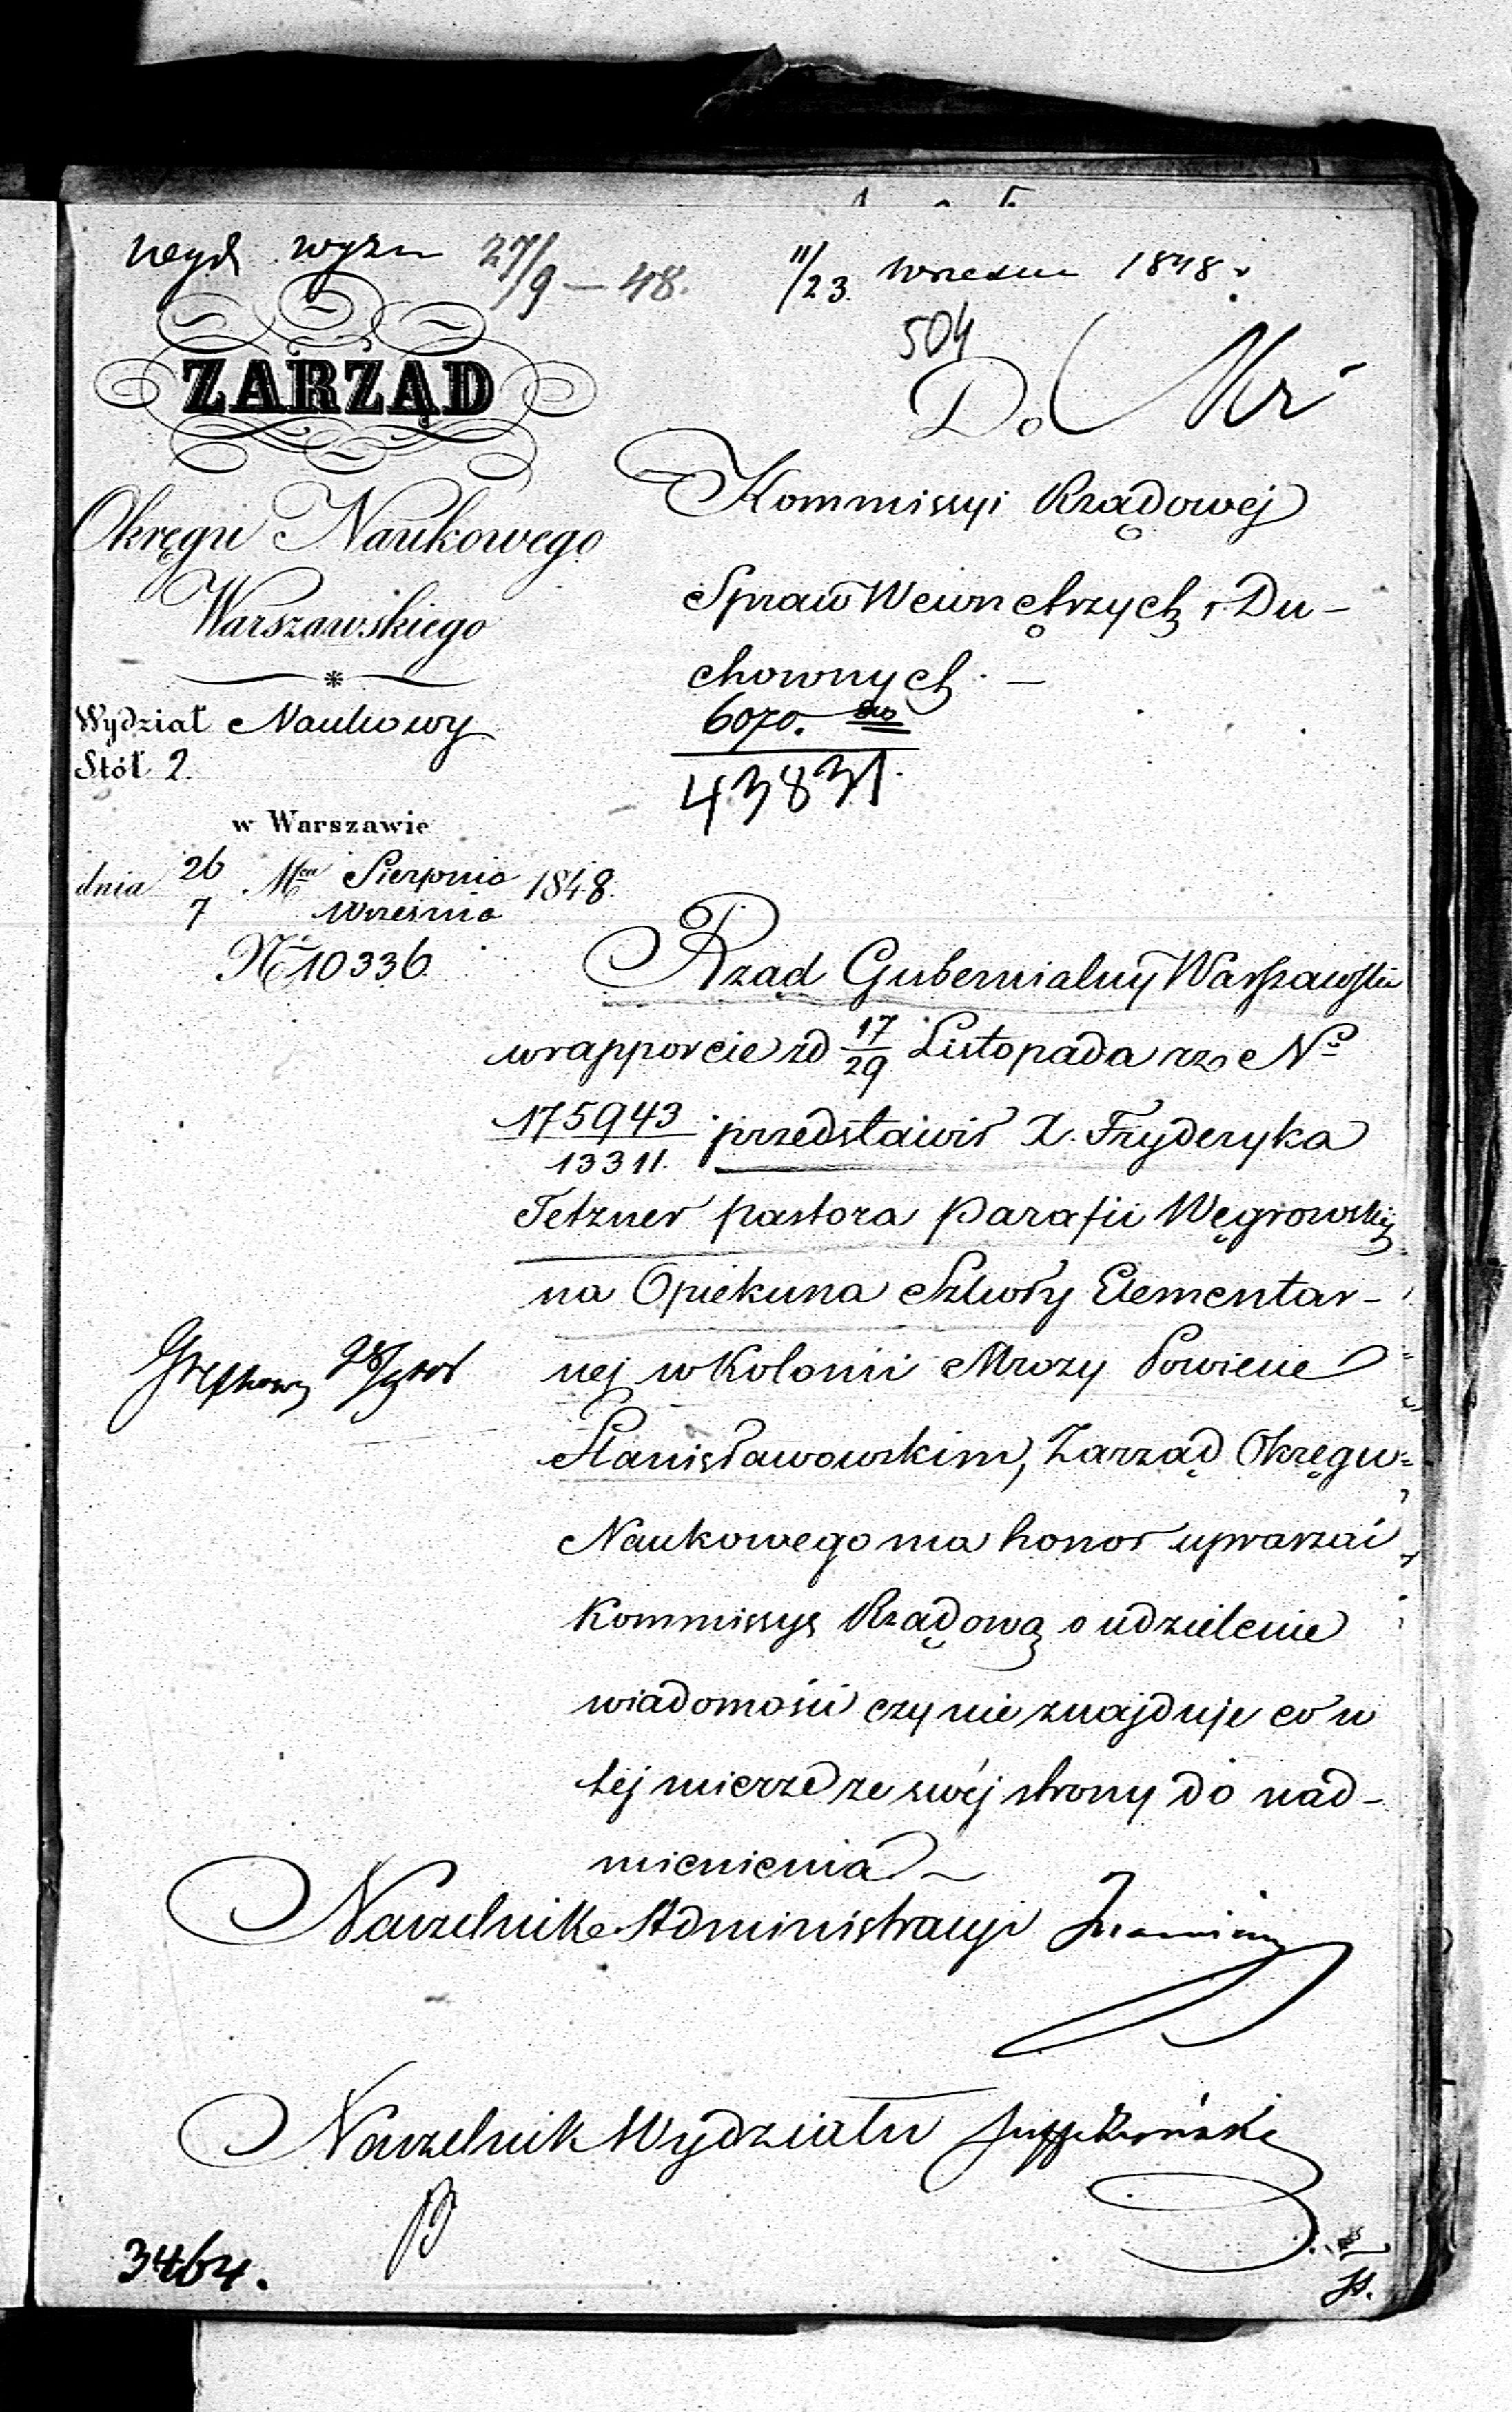 27/9 – 48.
11/23. 1848 r.
504
ZARZĄD
Okręgu Naukowego
Warszawskiego
Wydział Naukowy
Stół 2.
w Warszawie
dnia 26/7 Mca Sierpnia/Września 1848.
No 10336
Do
Kommissyi Rządowej
Spraw Wewnętrzych i Du-
chownych. –
6070.
43831.
Rząd Gubernialny Warszawski
w rapporcie zd 17/29 Listopada rz. No
175943/13311. przedstawił X. Fryderyka
Tetzner pastora Parafii Węgrowskiej
na Opiekuna Szkoły Elementar-
nej w Kolonii Mrozy Powiecie
Stanisławowskim, Zarząd Okręgu
Naukowego ma honor upraszać
Kommissyę Rządową o udzielenie
wiadomości czy nie znajduje co w
tej mierze ze swéj strony do nad-
mienienia –
Naczelnik Administracyi
Naczelnik Wydziału
3464.